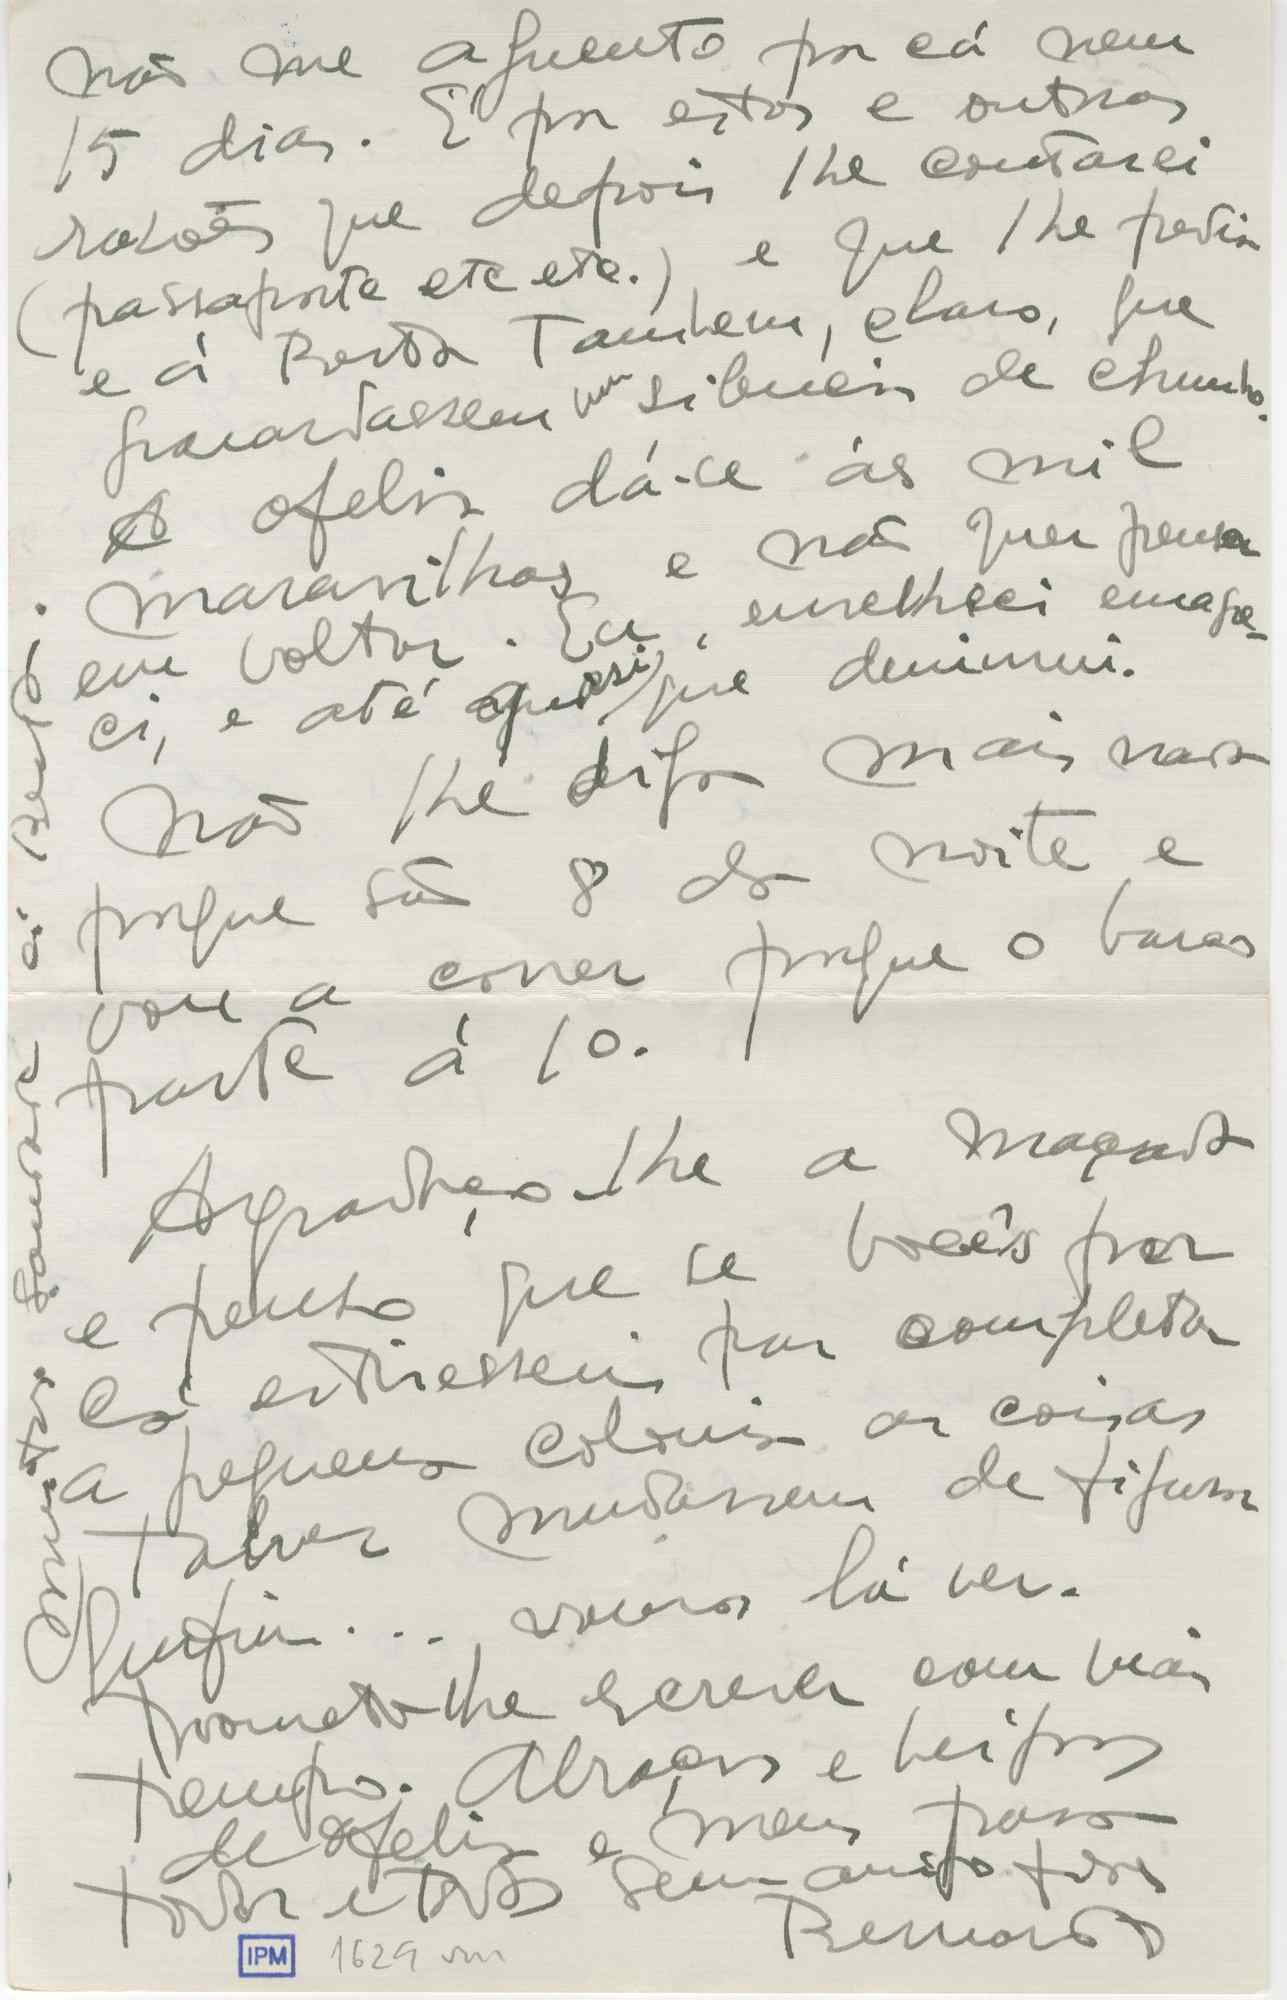 não me aguento por cá nem
15 dias. É por estas e outras
razões que depois lhe contarei
(passaporte etc etc.) e que lhe pedia
e á Berta Tambem, claro, que
guardassem um silencio de chumbo.
A Ofelia dá-se ás mil
maravilhas e não quer pensar
em voltar. Eu, envelheci emagre-
ci, e até quasi que deminui.
Não lhe digo mais nada
porque são 8 da noite e
vou a correr porque o barco
parte á 10.
Agradeço-lhe a maçada
e penso que se vocês por
cá estivessem por completar
a pequena colonia as coisas
talvez mudassem de figura
Enfim... vamos lá ver.
Prometo-lhe escrever com mais
tempo. Abraços e beijos
de Ofelia e meus para
todos e todas Seu amigo
Bernardo
saudade á Berta.
IPM 1629 vm